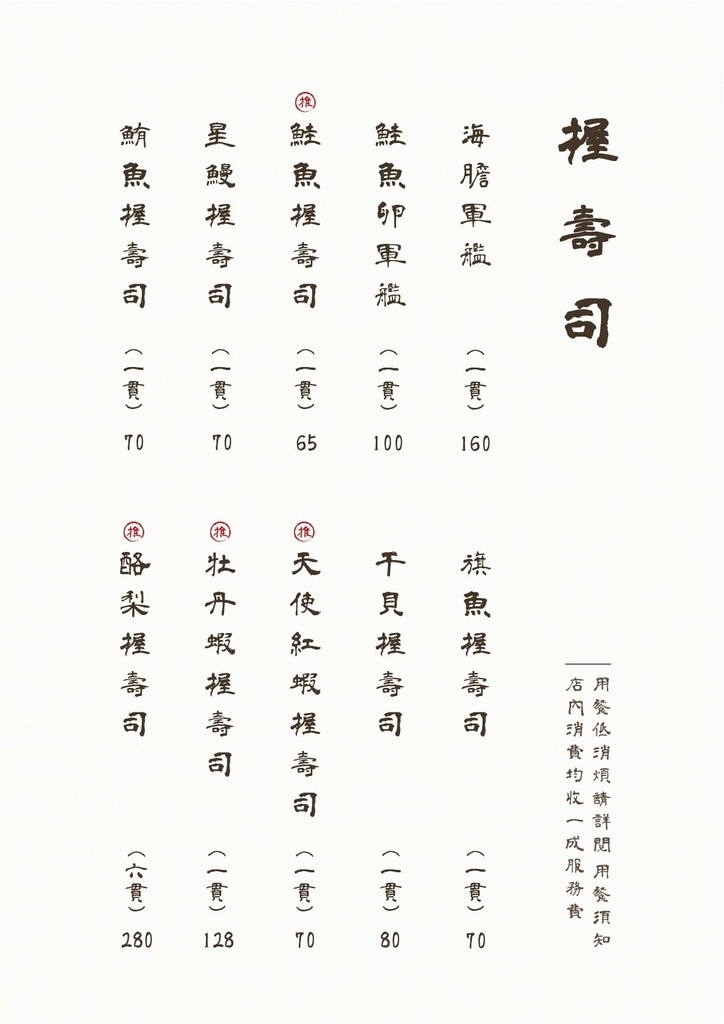 握壽司
海膽軍艦
（一貫）
160
鮭魚卵軍艦
（一貫）
100
推
鮭魚握壽司
（一貫）
65
星鰻握壽司
（一貫）
70
鮪魚握壽司
（一貫）
70
旗魚握壽司
（一貫）
70
干貝握壽司
（一貫）
80
推
天使紅蝦握壽司
（一貫）
70
推
牡丹蝦握壽司
（一貫）
128
推
酪梨握壽司
（六貫）
280
用餐低消煩請詳閱用餐須知
店內消費均收一成服務費